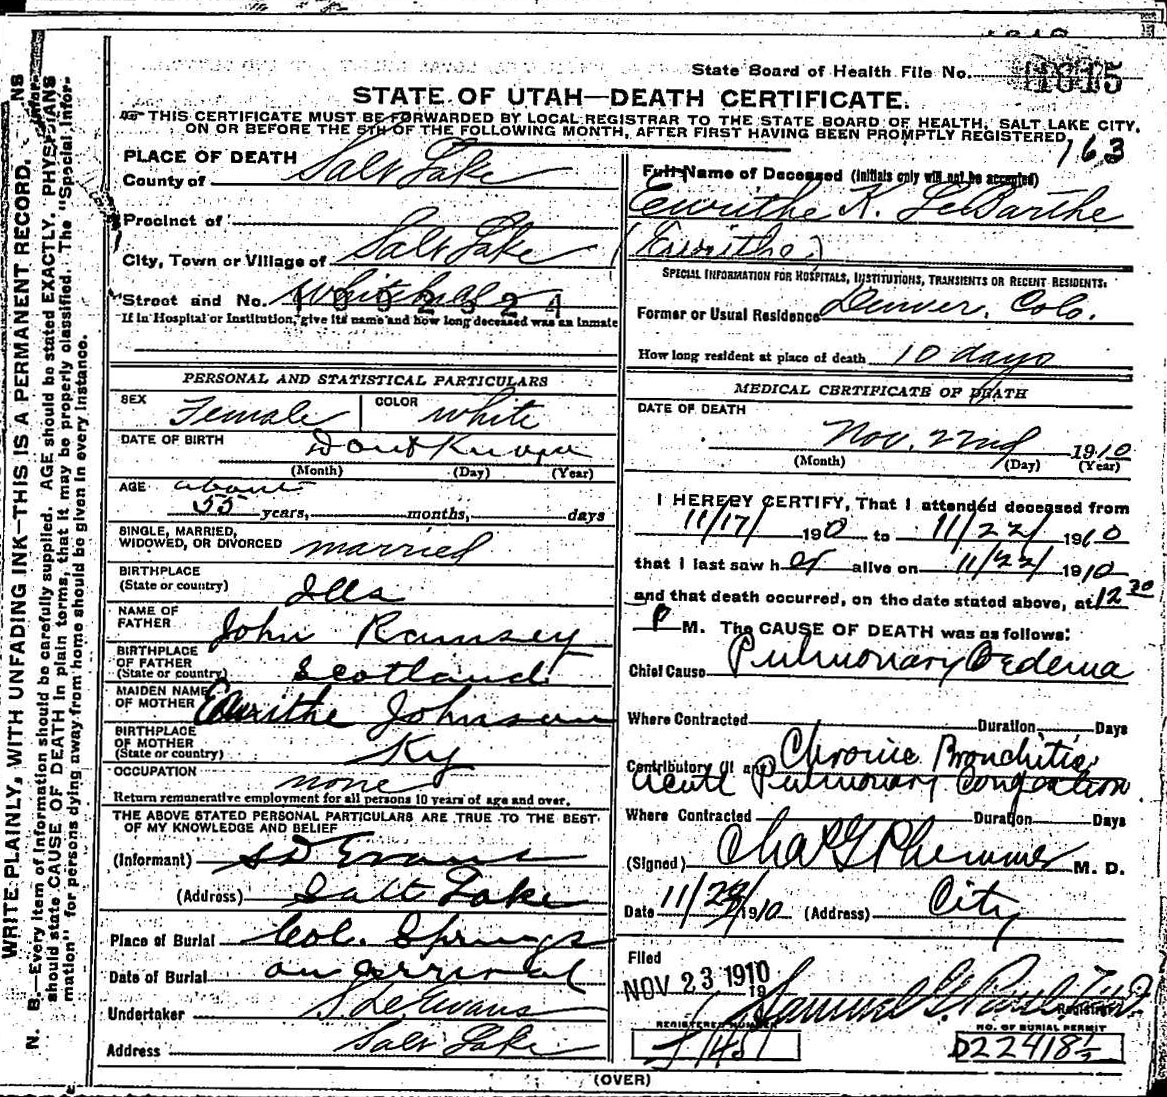 State Board of Health File No. 1815
STATE OF UTAH—DEATH CERTIFICATE.
THIS CERTIFICATE MUST BE FORWARDED BY LOCAL REGISTRAR TO THE STATE BOARD OF HEALTH, SALT LAKE CITY,
ON OR BEFORE THE 5TH OF THE FOLLOWING MONTH, AFTER FIRST HAVING BEEN PROMPTLY REGISTERED.
163
WRITE PLAINLY, WITH UNFADING INK—THIS IS A PERMANENT RECORD.
N. B.—Every item of information should be carefully supplied. AGE should be stated EXACTLY. PHYSICIANS
should state CAUSE OF DEATH in plain terms, that it may be properly classified. The "Special Infor-
mation" for persons dying away from home should be given in every instance.
PLACE OF DEATH
County of Salt Lake
Precinct of
City, Town or Village of Salt Lake
Street and No. Whitehall
1002324
If in Hospital or Institution, give its name and how long deceased was an inmate
PERSONAL AND STATISTICAL PARTICULARS
SEX Female COLOR White
DATE OF BIRTH Dont Know
(Month) (Day) (Year)
AGE about
55 years, months, days
SINGLE, MARRIED,
WIDOWED, OR DIVORCED married
BIRTHPLACE
(State or country) Ills
NAME OF
FATHER John Ramsey
BIRTHPLACE
OF FATHER
(State or country) Scotland
MAIDEN NAME
OF MOTHER Eurithe Johnson
BIRTHPLACE
OF MOTHER
(State or country) Ky
OCCUPATION none
Return remunerative employment for all persons 10 years of age and over.
THE ABOVE STATED PERSONAL PARTICULARS ARE TRUE TO THE BEST
OF MY KNOWLEDGE AND BELIEF
(Informant) S D Evans
(Address) Salt Lake
Place of Burial Col. Springs
Date of Burial on arrival
Undertaker S D Evans
Address Salt Lake
Full Name of Deceased (Initials only will not be accepted)
Eurithe K. LeBarthe
(Eurithe)
SPECIAL INFORMATION FOR HOSPITALS, INSTITUTIONS, TRANSIENTS OR RECENT RESIDENTS:
Former or Usual Residence Denver, Colo.
How long resident at place of death 10 days
MEDICAL CERTIFICATE OF DEATH
DATE OF DEATH
Nov. 22nd 1910
(Month) (Day) (Year)
I HEREBY CERTIFY, That I attended deceased from
11/17/ 1910 to 11/22/ 1910
that I last saw her alive on 11/22/ 1910
and that death occurred, on the date stated above, at 12 30
P M. The CAUSE OF DEATH was as follows:
Chief Cause Pulmonary Oedema
Where Contracted Duration Days
Contributory (if any) Chronic Bronchitis,
Acute Pulmonary Congestion.
Where Contracted Duration Days
(Signed) Chas G Plummer M. D.
Date 11/22/1910 (Address) City
Filed
NOV 23 1910 19
Samuel G. Paul
Registrar
REGISTERED NUMBER
J 1451
NO. OF BURIAL PERMIT
D22418½
(OVER)